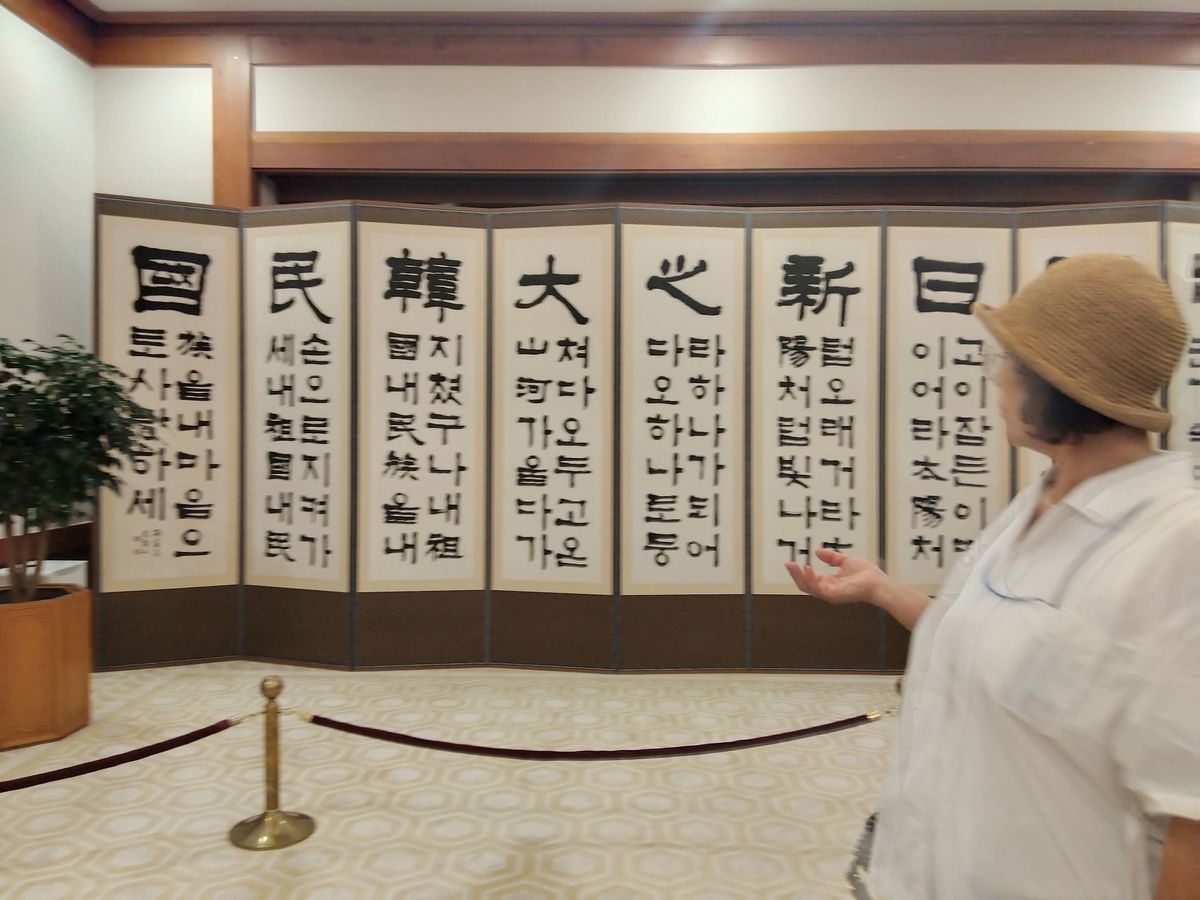 日
고이잠든이
이어라太陽처
新
럼오래거라太
陽처럼빛나거
之
라하나가되어
다오하나로뭉
大
쳐다오두고온
山河가울다가
韓
지쳤구나내祖
國내民族을내
民
손으로지켜가
세내祖國내民
國
族을내마음으
로사랑하세